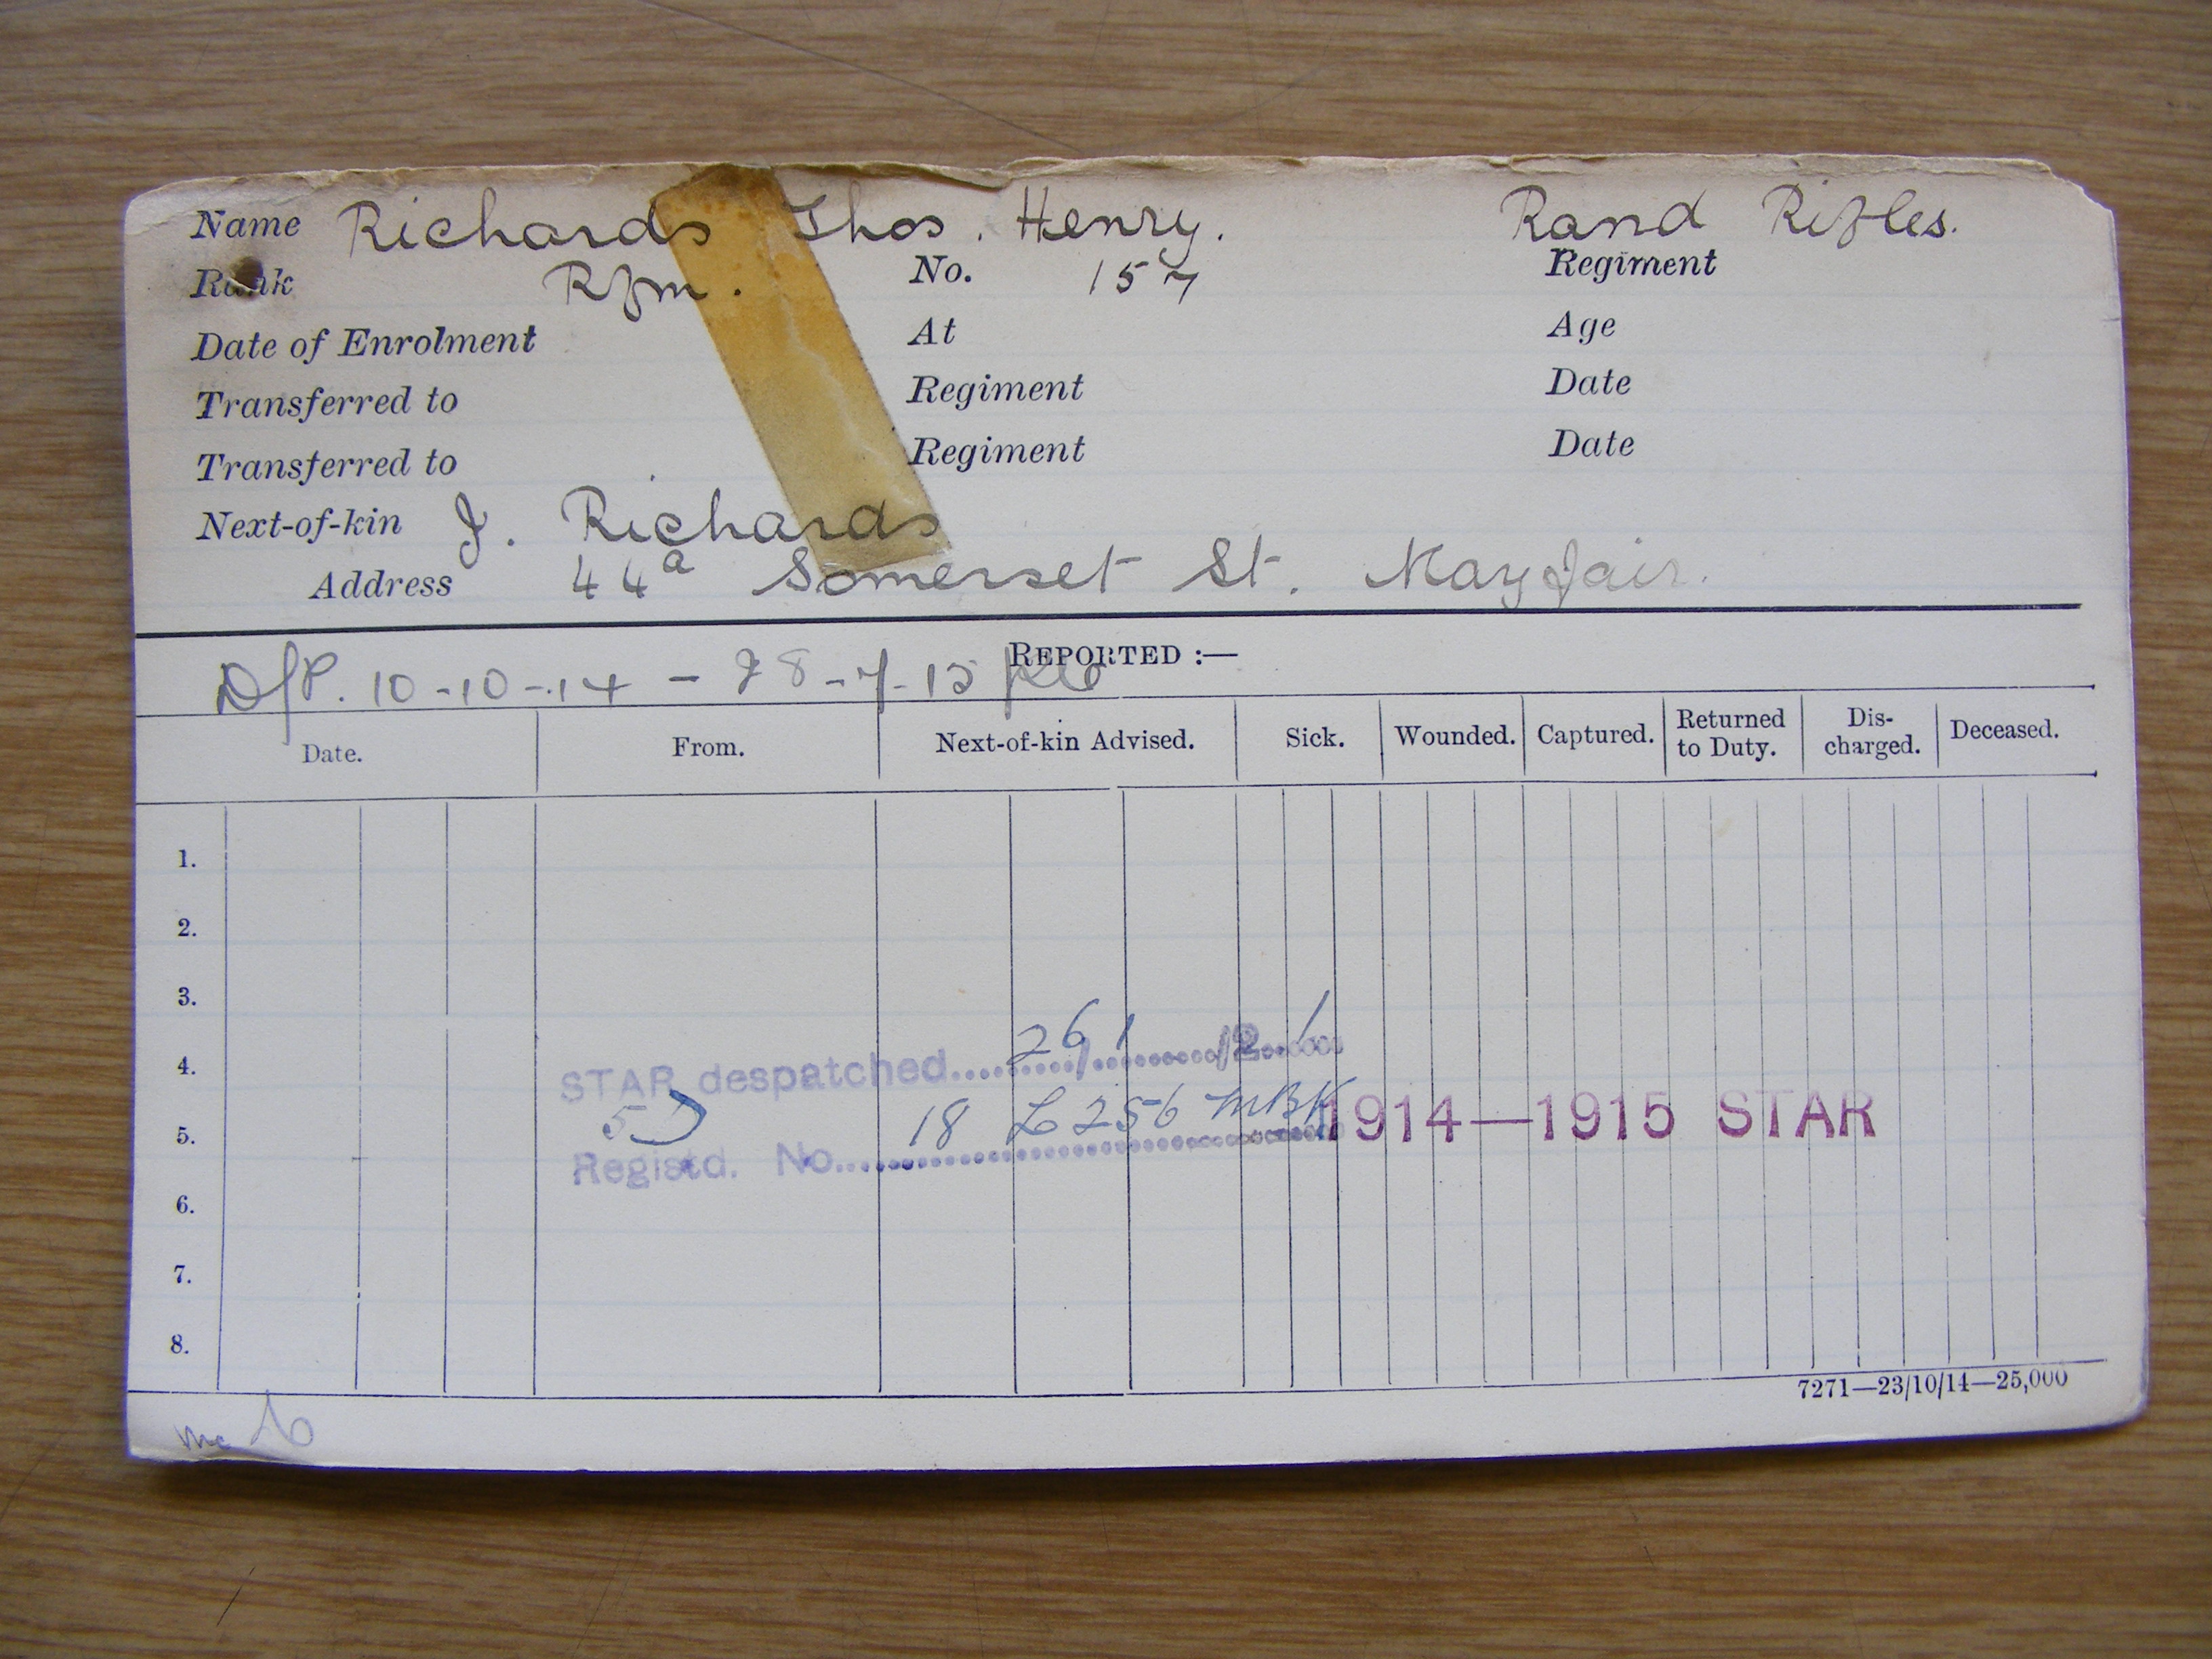 Name Richards Thos. Henry. Rand Rifles.
Rank Rfm. No. 157 Regiment
Date of Enrolment At Age
Transferred to Regiment Date
Transferred to Regiment Date
Next-of-kin J. Richards
Address 44a Somerset St. Mayfair.
REPORTED :—
D/P. 10-10-14 - 28-7-15
Date. From. Next-of-kin Advised. Sick. Wounded. Captured. Returned to Duty. Dis-charged. Deceased.
1.
2.
3.
4. STAR despatched 26/1/21
5. 18 L 256 MBK 1914—1915 STAR
Registd. No.
6.
7.
8.
7271—23/10/14—25,000